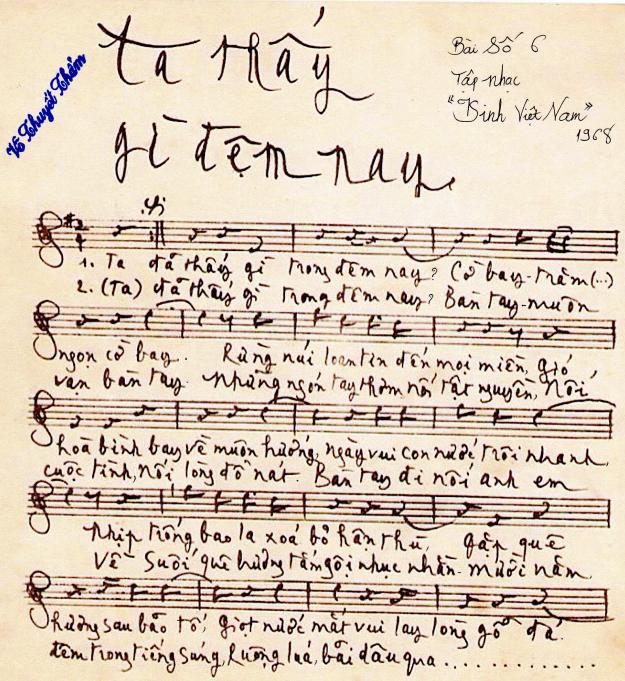 Vô Thuyết Thảm
Ta thấy
gì đêm nay
Bài Số 6
Tập nhạc
"Kinh Việt Nam"
1968
1. Ta đã thấy gì trong đêm nay? Cờ bay trăm (...)
2. (Ta) đã thấy gì trong đêm nay? Bàn tay muôn
ngọn cờ bay. Rừng núi loan tin đến mọi miền, gió
vạn bàn tay. Những ngón tay thơm nối tật nguyền, Nối
hoà bình bay về muôn hướng, ngày vui con nước trôi nhanh,
cuộc tình, nối lòng đổ nát. Bàn tay đi nối anh em
Nhịp trống bao la xoá bỏ hận thù, gặp quê
Về suối quê hương tắm gội nhục nhằn. Mười năm
hương sau bão tố, giọt nước mắt vui lay lòng gỗ đá.
đêm trong tiếng súng, Ruộng lúa, bãi dâu qua ...............